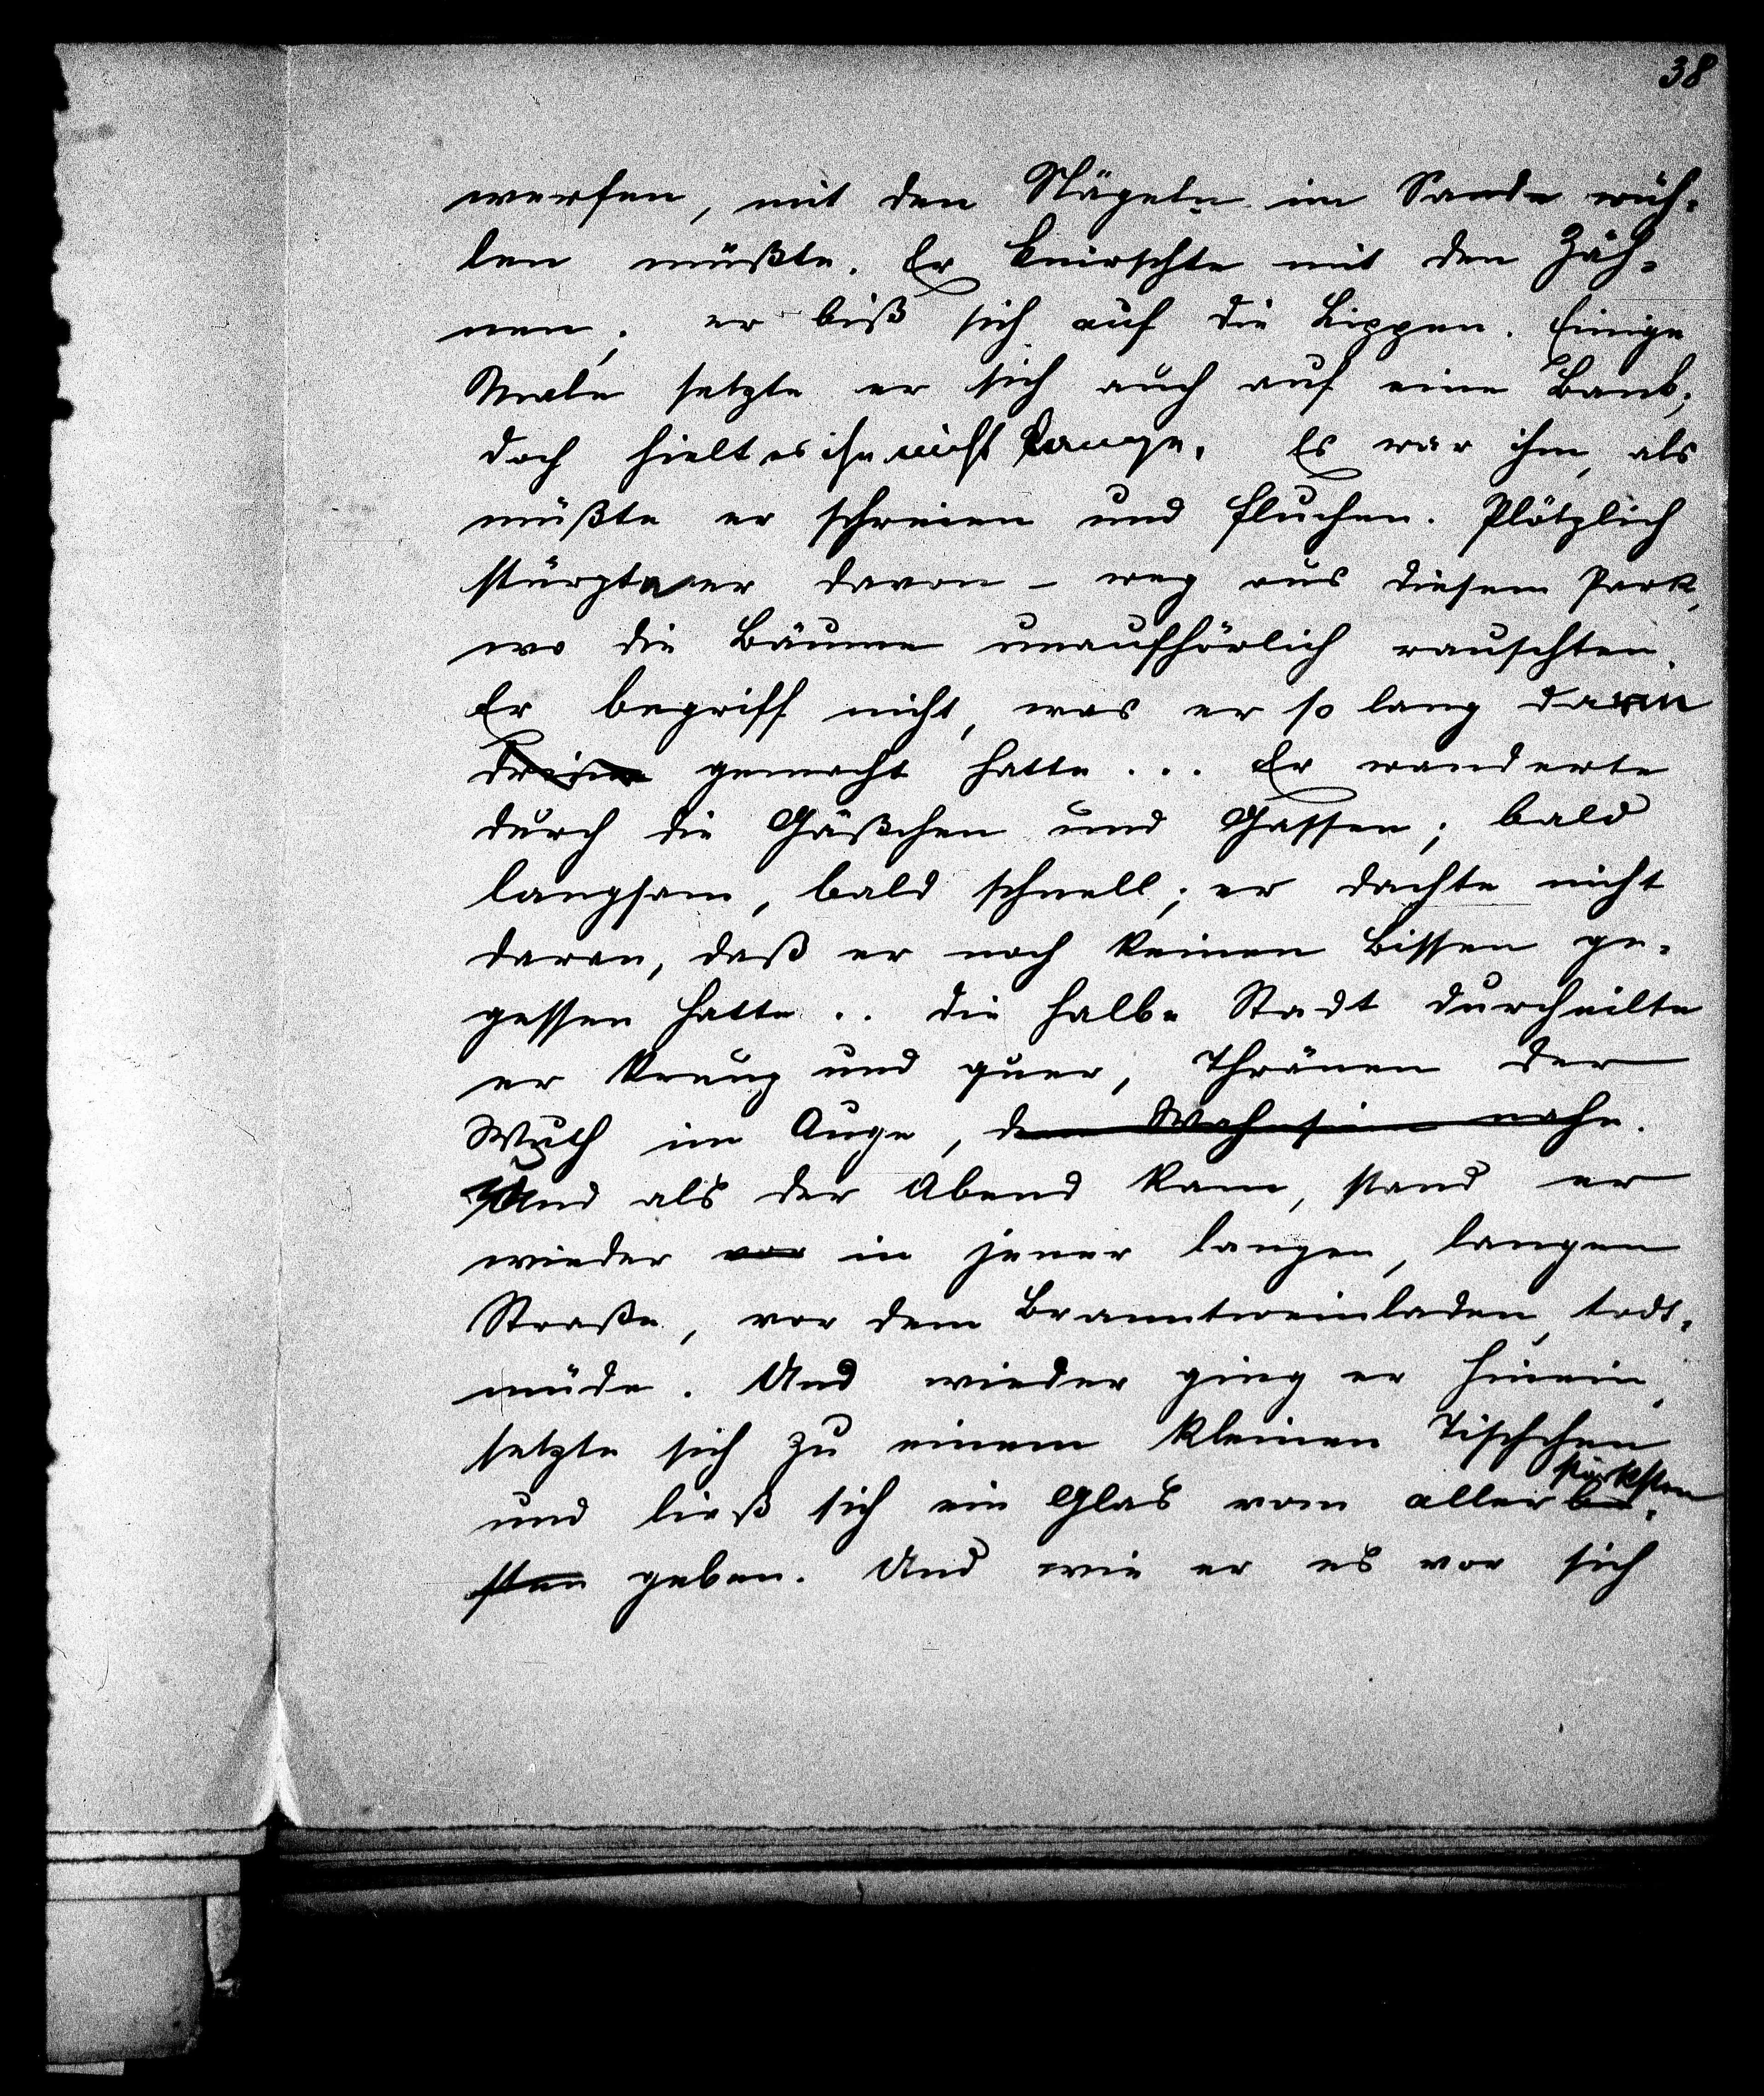 38
werfen, mit den Nägeln im Sande wüh-
len müßte. Er knirschte mit den Zäh-
nen, er biß sich auf die Lippen. Einige
Male setzte er sich auch auf eine Bank;
doch hielt es ihn nicht lange. Es war ihm, als
müßte er schreien und fluchen. Plötzlich
stürzte er davon – weg aus diesem Park,
wo die Bäume unaufhörlich rauschten.
Er begriff nicht, was er so lang darin
gemacht hatte ... Er wanderte
durch die Gäßchen und Gassen; bald
langsam, bald schnell; er dachte nicht
daran, daß er noch keinen Bissen ge-
gessen hatte .. die halbe Stadt durcheilte
er kreuz und quer, Thränen der
Wuth im Auge, dem Wahnsinn nahe.
Und als der Abend kam, stand er
wieder vor in jener langen, langen
Straße, vor dem Branntweinladen, todt-
müde. Und wieder ging er hinein,
setzte sich zu einem kleinen Tischchen
stärksten
und ließ sich ein Glas vom allerbe-
sten geben. Und wie er es vor sich